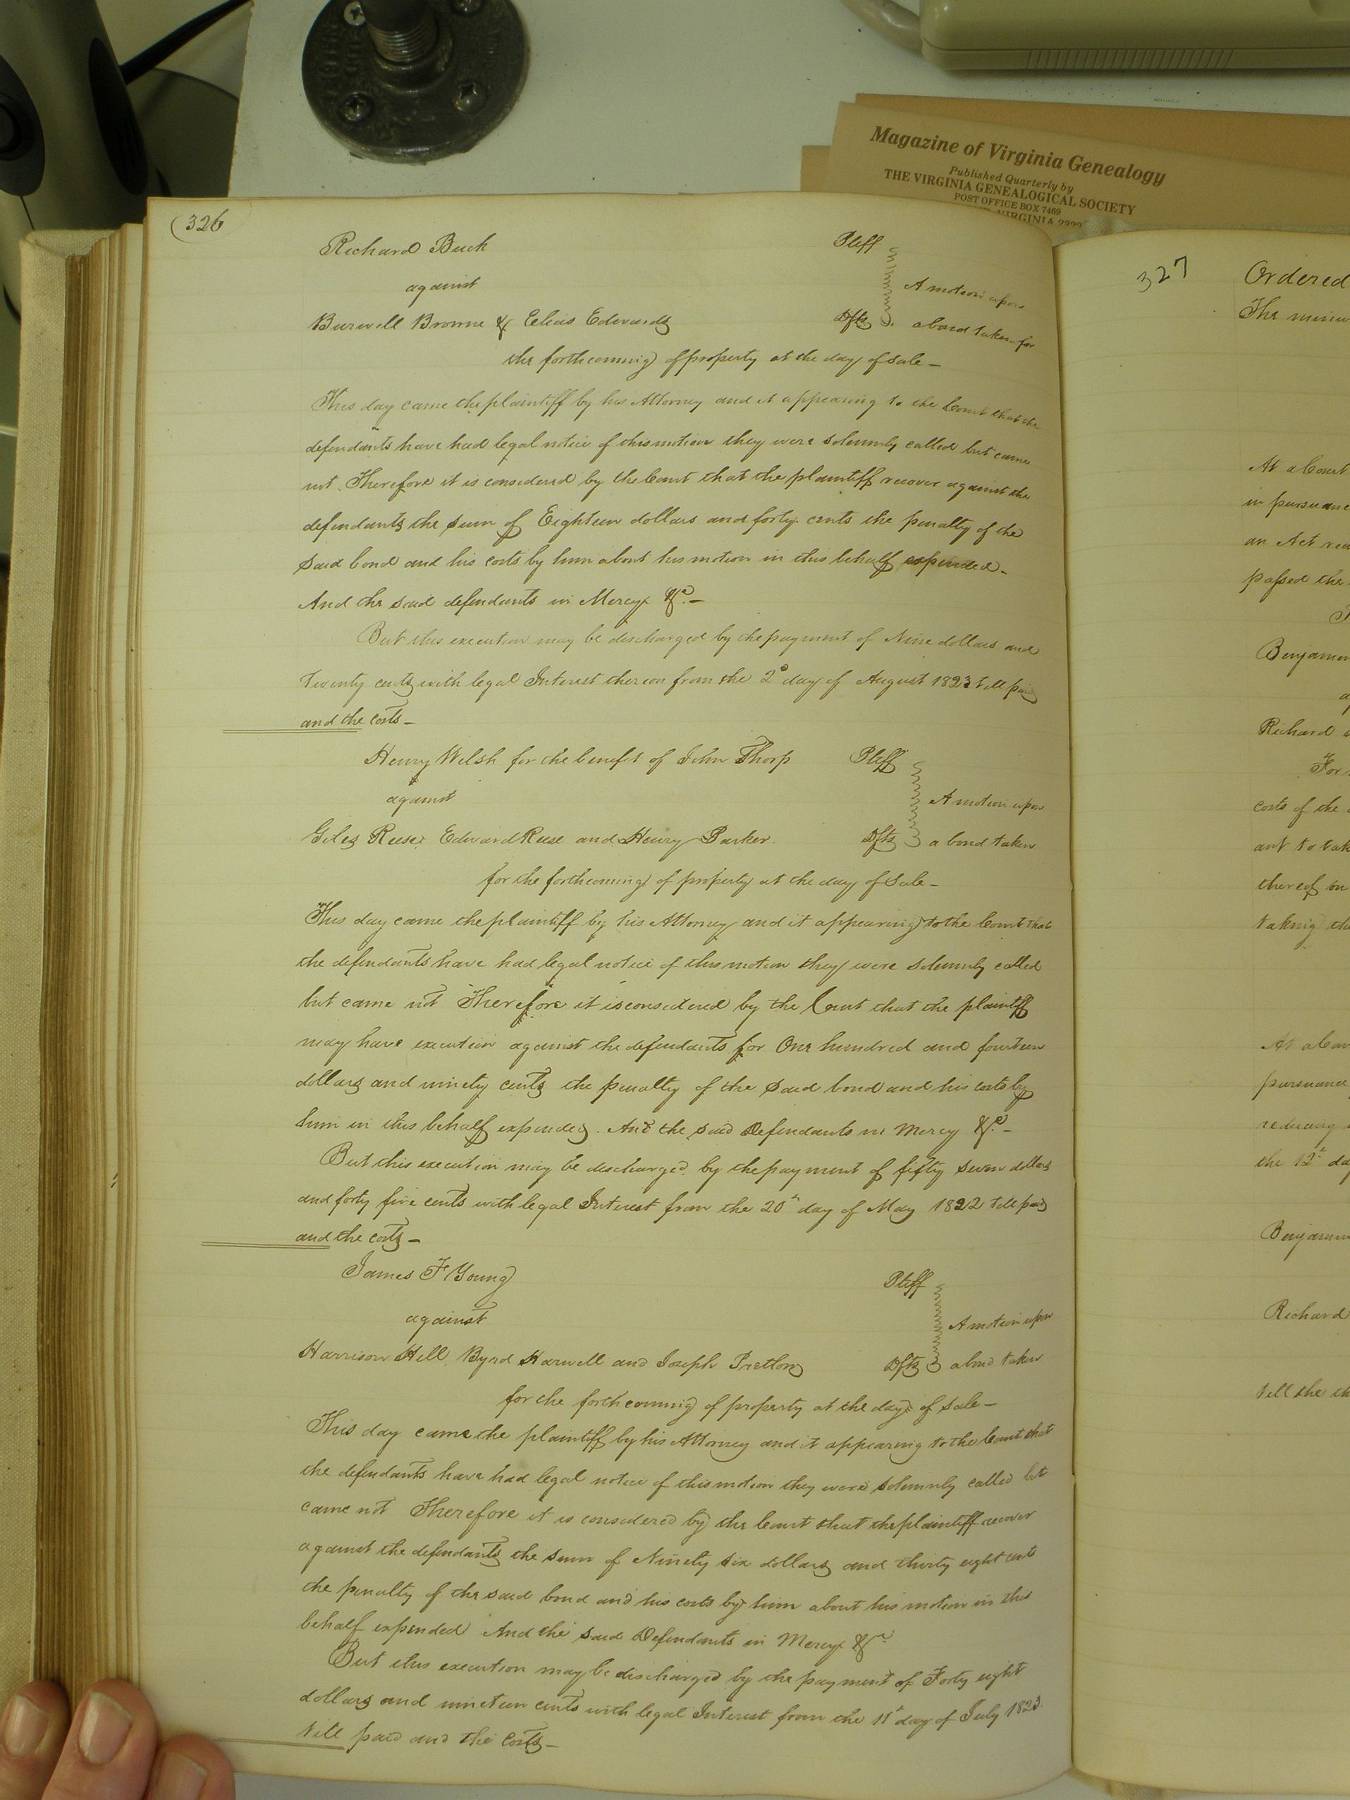 Magazine of Virginia Genealogy
Published Quarterly by
THE VIRGINIA GENEALOGICAL SOCIETY
POST OFFICE BOX 7469
VIRGINIA
326
Richard Buck Pltff
against A motion upon
Burwell Browne & Elias Edwards Dfts a bond taken for
the forthcoming of property at the day of sale —
This day came the plaintiff by his Attorney and it appearing to the Court that the
defendants have had legal notice of this motion they were solemnly called but came
not. Therefore it is considered by the Court that the plaintiff recover against the
defendants the sum of Eighteen dollars and forty cents the penalty of the
said bond and his costs by him about his motion in this behalf expended —
And the said defendants in Mercy &c. —
But this execution may be discharged by the payment of Nine dollars and
Twenty cents with legal Interest thereon from the 2d day of August 1823 till paid
and the costs —
Henry Welsh for the benefit of John Thorp Pltff
against A motion upon
Giles Reese Edward Reese and Henry Barker Dfts a bond taken
for the forthcoming of property at the day of sale —
This day came the plaintiff by his Attorney and it appearing to the Court that
the defendants have had legal notice of this motion they were solemnly called
but came not Therefore it is considered by the Court that the plaintiff
may have execution against the defendants for One hundred and fourteen
dollars and ninety cents the penalty of the said bond and his costs by
him in this behalf expended. And the said Defendants in Mercy &c. —
But this execution may be discharged by the payment of fifty seven dollars
and forty five cents with legal Interest from the 20th day of May 1822 till paid
and the costs —
James F Young Pltff
against A motion upon
Harrison Hill, Byrd Harwell and Joseph Pretlow Dfts a bond taken
for the forthcoming of property at the day of sale —
This day came the plaintiff by his Attorney and it appearing to the Court that
the defendants have had legal notice of this motion they were solemnly called but
came not Therefore it is considered by the Court that the plaintiff recover
against the defendants the sum of Ninety six dollars and thirty eight cents
the penalty of the said bond and his costs by him about his motion in this
behalf expended And the said Defendants in Mercy &c.
But this execution may be discharged by the payment of Forty eight
dollars and nineteen cents with legal Interest from the 11th day of July 1823
till paid and the Costs —
327
Ordered
The minu
At a Court
in pursuance
an Act
passed the
Benjamin
Richard
For
costs of the
ant to tak
thereof in
taking the
At a Cour
pursuance
reducing
the 12th da
Benjamin
Richard
till the